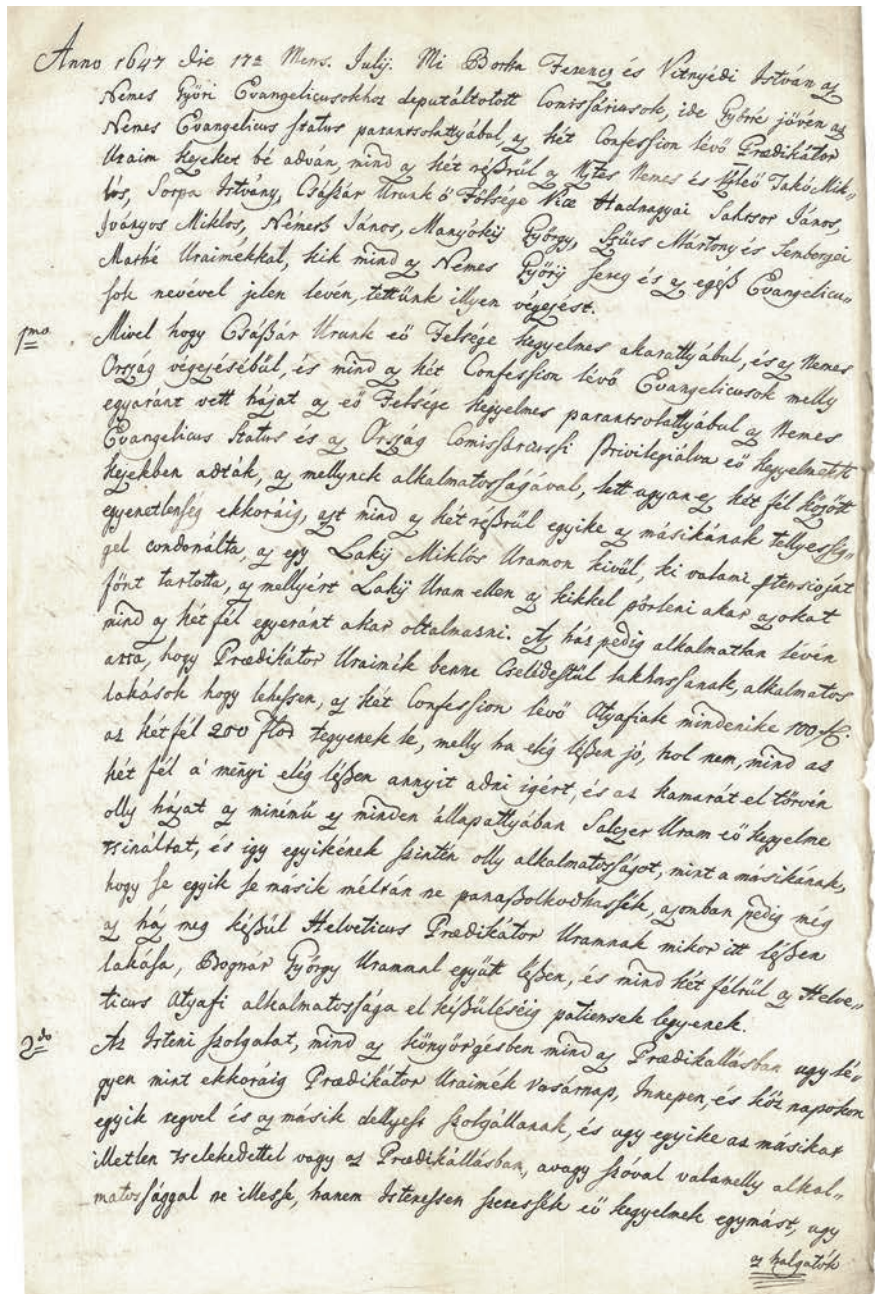 Anno 1647 die 17a Mens. Julij. Mi Borka Ferencz és Vitnyédi István az
Nemes Győri Evangelicusokhoz deputáltotott Comissáriusok, ide Győrré jövén az
Nemes Evangelicus status parantsolattyábul, az két Confession lévő Prædikátor
Uraim kezeket bé adván, mind a két réßrül az Ntes Nemes és Vitéző Takó Mik-
lós, Sorpa Istvány, Csáßár Urunk ő Fölsége Vice Hadnagyai Sahtsor János,
Iványos Miklos, Németh János, Manyókij György, Szücs Mártony és Semberzei
Mathé Uraimékkal, kik mind az Nemes Győrij sereg és az egéß Evangelicu-
sok nevével jelen levén, tettünk illyen végezést.
1mo Mivel hogy Csáßár Urunk eő Felsége kegyelmes akarattyábul, és az Nemes
Ország végezésébül, és mind az két Confession lévő Evangelicusok melly
egyaránt vett házat az eő Felsége kegyelmes parantsolattyábul az Nemes
Evangelicus Status és az Ország Comissariussi Privilegiálva eő kegyelmek
kezekben adták, az mellynek alkalmatosságával, lett ugyan ez két fél között
egyenetlenség ekkoráig, azt mind az két réßrül egyike az másikának tellyessig-
gel condonálta, az egy Lakij Miklós Uramon kivül, ki valami ptensioját
fönt tartotta, az mellyért Lakij Uram ellen az kikkel pörleni akar azokat
mind az két fél egyeránt akar oltalmazni. Az ház pedig alkalmatlan lévén
arra, hogy Prædikátor Uraimék benne Cselédestül lakhassanak, alkalmatos
lakások hogy lehessen, az két Confession lévő Atyafiak mindenike 100 f.
az két fél 200 ftod tegyenek le, melly ha elég léßen jó, hol nem, mind az
két fél á menyi elég léßen annyit adni igért, és az kamarát el törvén
olly házat az minémű ez minden állapattyában Salczer Uram eő kegyelme
tsináltat, és igy egyikének szintén olly alkalmatosságot, mint a másikának,
hogy se egyik se másik méltán ne panaßolkodhassék, azomban pedig még
az ház meg kéßül Helveticus Prædikátor Uramnak mikor itt léßen
lakása, Bognár György Urammal együtt léßen, és mind két félrül az Helve-
ticus Atyafi alkalmatossága el kißüléséig patiensek legyenek.
2do Az Isteni szolgalat, mind az könyörgésben mind az Prædikallásban ugy lé-
gyen mint ekkoráig Prædikátor Uraimék vasárnap, Innepen, és köz napokon
egyik regvel és az másik dellyest szolgállanak, és ugy egyike az másikat
illetlen tselekedettel vagy az Prædikállásban, avagy szóval valamelly alkal-
matossággal ne illesse, hanem Istenessen szeressék eő kegyelmek egymást, ugy
az halgatók